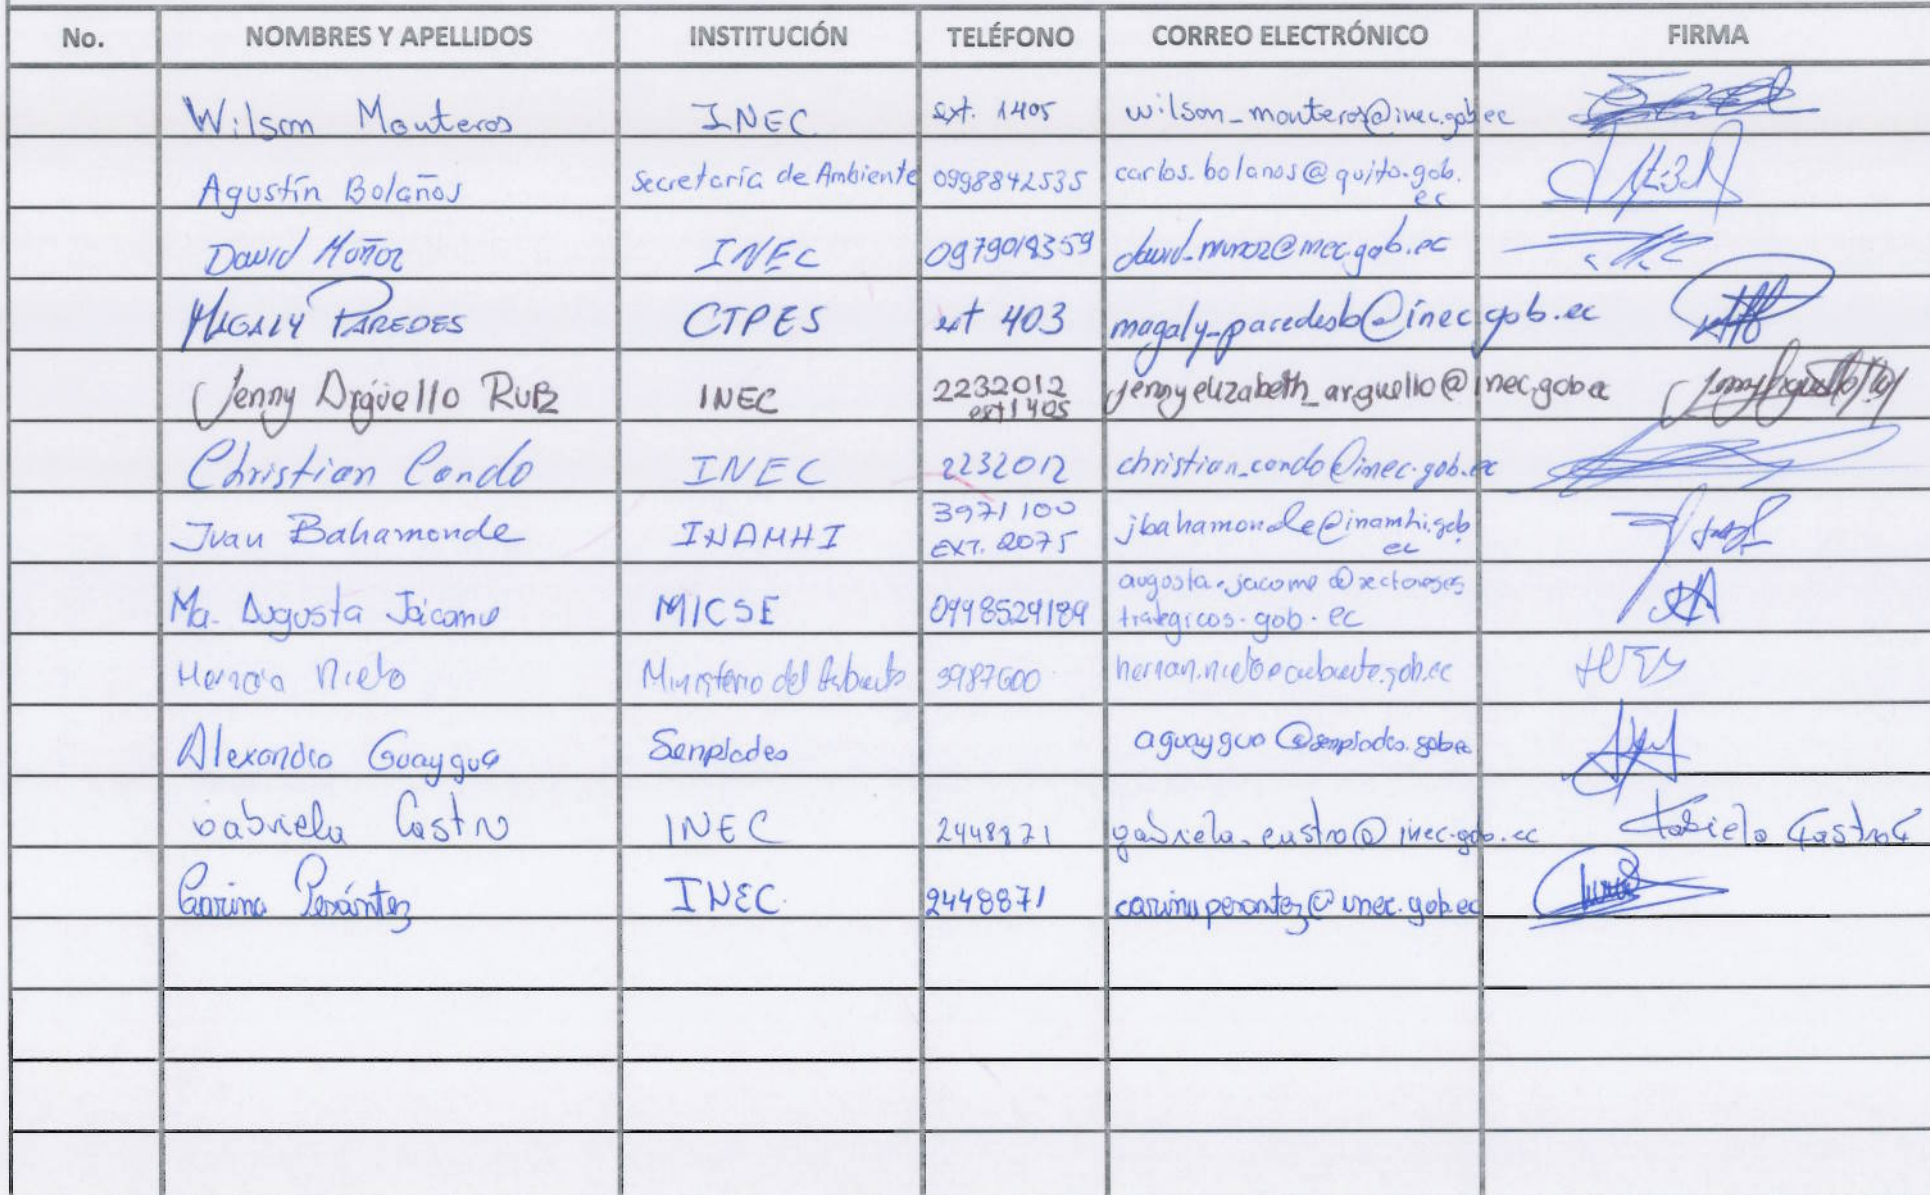 No. NOMBRES Y APELLIDOS INSTITUCIÓN TELÉFONO CORREO ELECTRÓNICO FIRMA
Wilson Monteros INEC ext. 1405 wilson_monteros@inec.gob.ec
Agustín Bolaños Secretaría de Ambiente 0998842535 carlos.bolanos@quito.gob.
ec
David Muñoz INEC 0979018359 david_munoz@inec.gob.ec
MAGALY PAREDES CTPES ext 403 magaly_paredesb@inec.gob.ec
Jenny Argüello Ruiz INEC 2232012 jennyelizabeth_arguello@inec.gob.ec
ext 1405
Christian Condo INEC 2232012 christian_condo@inec.gob.ec
Juan Bahamonde INAMHI 3971100 jbahamonde@inamhi.gob
EXT. 2075 ec
Ma. Augusta Jácome MICSE augusta.jacome@sectoreses
trategicos.gob.ec
Nieto Ministerio del Ambiente 3987600 hernan.nieto@ambiente.gob.ec
Alexandra Guaygua Senplades aguaygua@senplades.gob.ec
Gabriela Castro INEC 2448871 gabriela_castro@inec.gob.ec Gabriela Castro
Carina Perántez INEC. 2448871